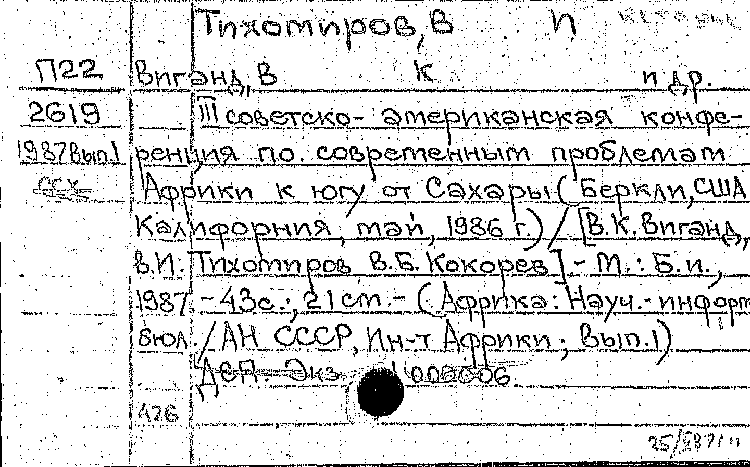 Тихомиров, В И
П22 Виганд, В К и др.
2619 III советско- американская конфе-
1987 Вып.1 ренция по современным проблемам
Африки к югу от Сахары (Беркли, США
Калифорния, май, 1986 г.) / [В.К. Виганд,
В.И. Тихомиров В.Б. Кокорев] - М.: Б.и.,
1987 - 43с.; 21 см. - (Африка: Науч.-информ
бюл. / АН СССР, Ин-т Африки; Вып.1)
Деп. Экз. 000006
А26